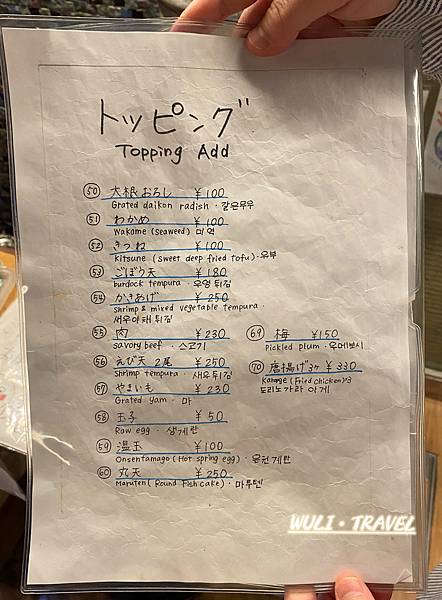 トッピング
Topping Add
50 大根おろし ¥100
Grated daikon radish・같은무우
51 わかめ ¥100
Wakame (seaweed) 미역
52 きつね ¥100
Kitsune (sweet deep fried tofu)・유부
53 ごぼう天 ¥180
burdock tempura 우엉 튀김
54 かきあげ ¥250
Shrimp & mixed vegetable tempura・
새우야채 튀김
55 肉 ¥230
savory beef・소고기
56 えび天 2尾 ¥250
Shrimp tempura・새우튀김
57 やまいも ¥230
Grated yam・마
58 玉子 ¥50
Raw egg・생계란
59 温玉 ¥100
Onsentamago (Hot spring egg)・온천계란
60 丸天 ¥250
Maruten (Round Fish cake)・마루텐
69 梅 ¥150
Pickled plum・우메보시
70 唐揚げ3ヶ ¥330
Karaage (Fried chicken)
도리노가라아게
WULI・TRAVEL